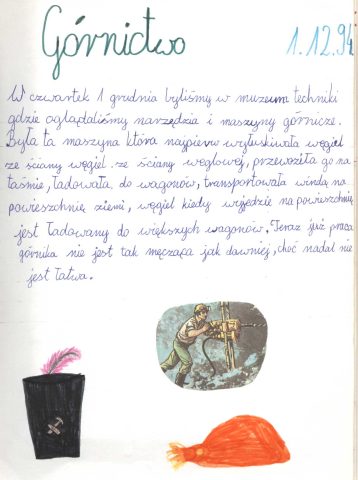 Górnictwo
1.12.94
W czwartek 1 grudnia byliśmy w muzeum techniki
gdzie oglądaliśmy narzędzia i maszyny górnicze.
Była ta maszyna która najpierw wyłuskiwała węgiel
ze ściany węgiel ze ściany węglowej, przewoziła go na
taśmie, ładowała, do wagonów, transportowała windą na
powierzchnię ziemi, węgiel kiedy wyjedzie na powierzchnię
jest ładowany do większych wagonów. Teraz już praca
górnika nie jest tak męcząca jak dawniej, choć nadal nie
jest łatwa.